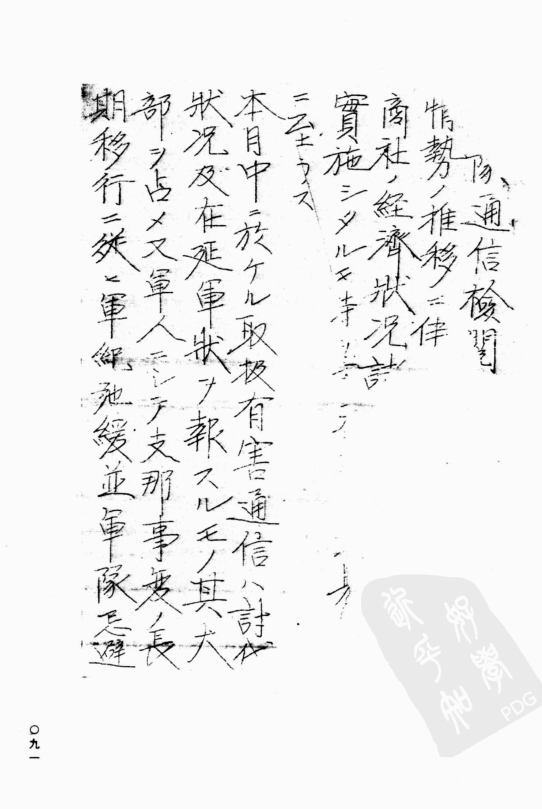 隊通信檢閲
情勢ノ推移ニ伴
商社ノ経濟狀況
實施シタルモ
ニ至ラス
本月中ニ於ケル取扱有害通信ハ討伐
狀況及在延軍狀ヲ報スルモノ其大
部ヲ占メ又軍人ニシテ支那事變ノ長
期移行ニ從ヒ軍紀弛緩並軍隊忌避
〇九一
PDG